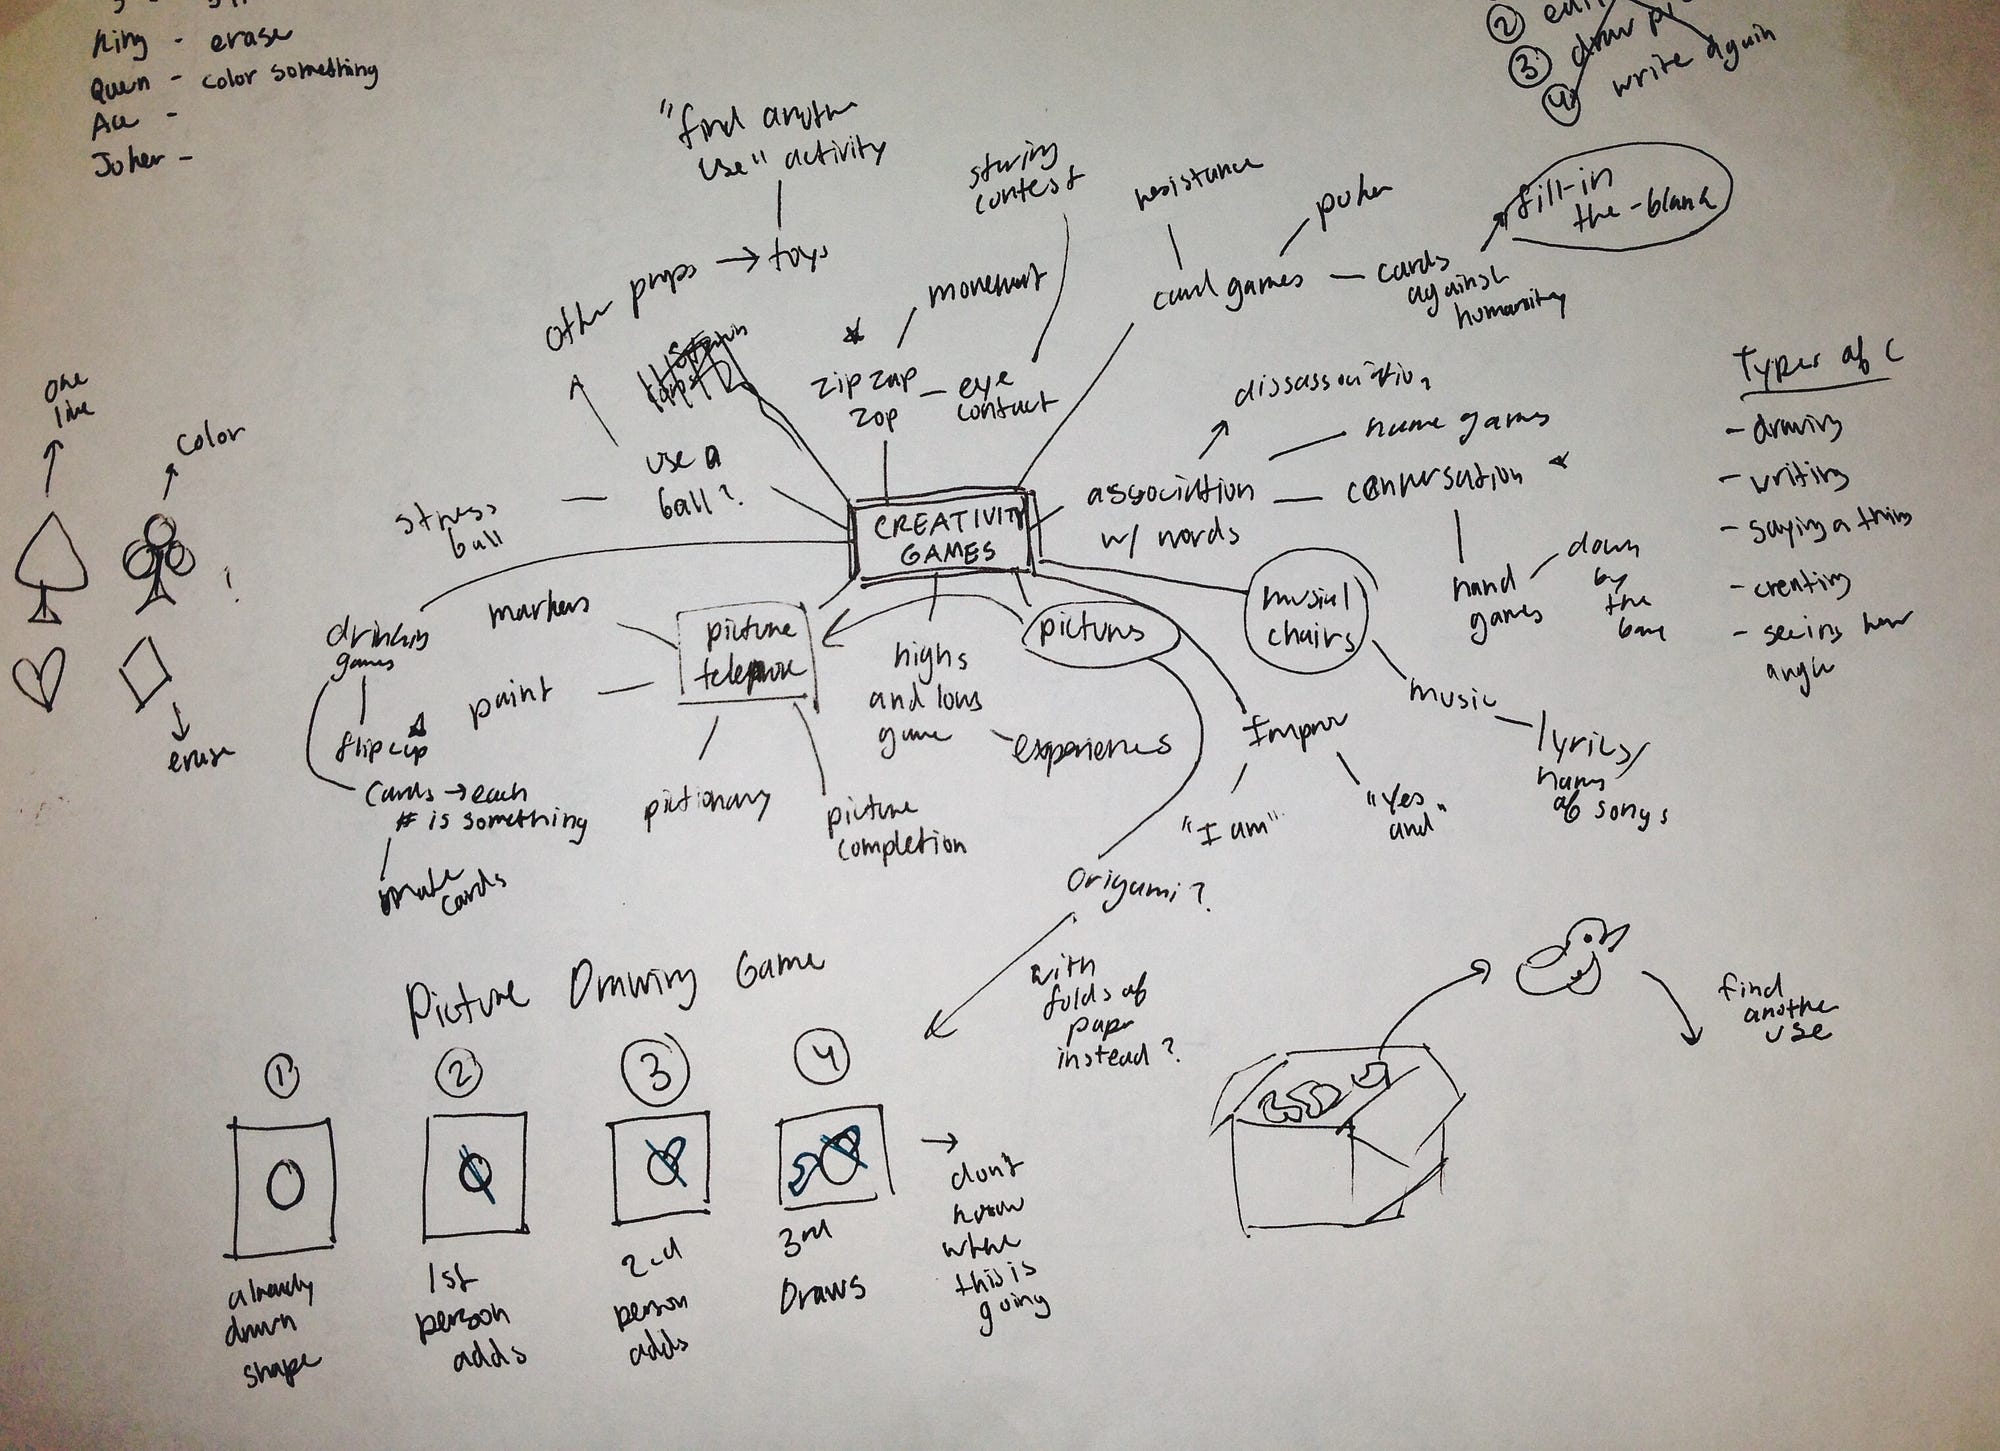 King - erase
Queen - color something
Ace -
Joker -
②
③ draw
④ write again
"find another
use" activity
staring
contest
resistance
poker
fill-in
the-blank
other props → toys
movement
card games
cards
against
humanity
zip zap
zop
eye
contact
dissassociation
name games
Types of C
- drawing
- writing
- saying a thing
- creating
- seeing new
angle
one
line
color
erase
use a
ball?
stress
ball
CREATIVITY
GAMES
association
w/ words
conversation
hand
games
down
by
the
musical
chairs
music
lyrics/
names
of songs
drinking
games
flip cup
cards → each
# is something
make
cards
markers
paint
picture
telephone
pictionary
picture
completion
highs
and lows
game
experiences
pictures
Improv
"I am"
"Yes
and"
origami?
with
folds of
paper
instead?
Picture Drawing Game
①
②
③
④
already
drawn
shape
1st
person
adds
2nd
person
adds
3rd
Draws
→
don't
know
where
this is
going
find
another
use